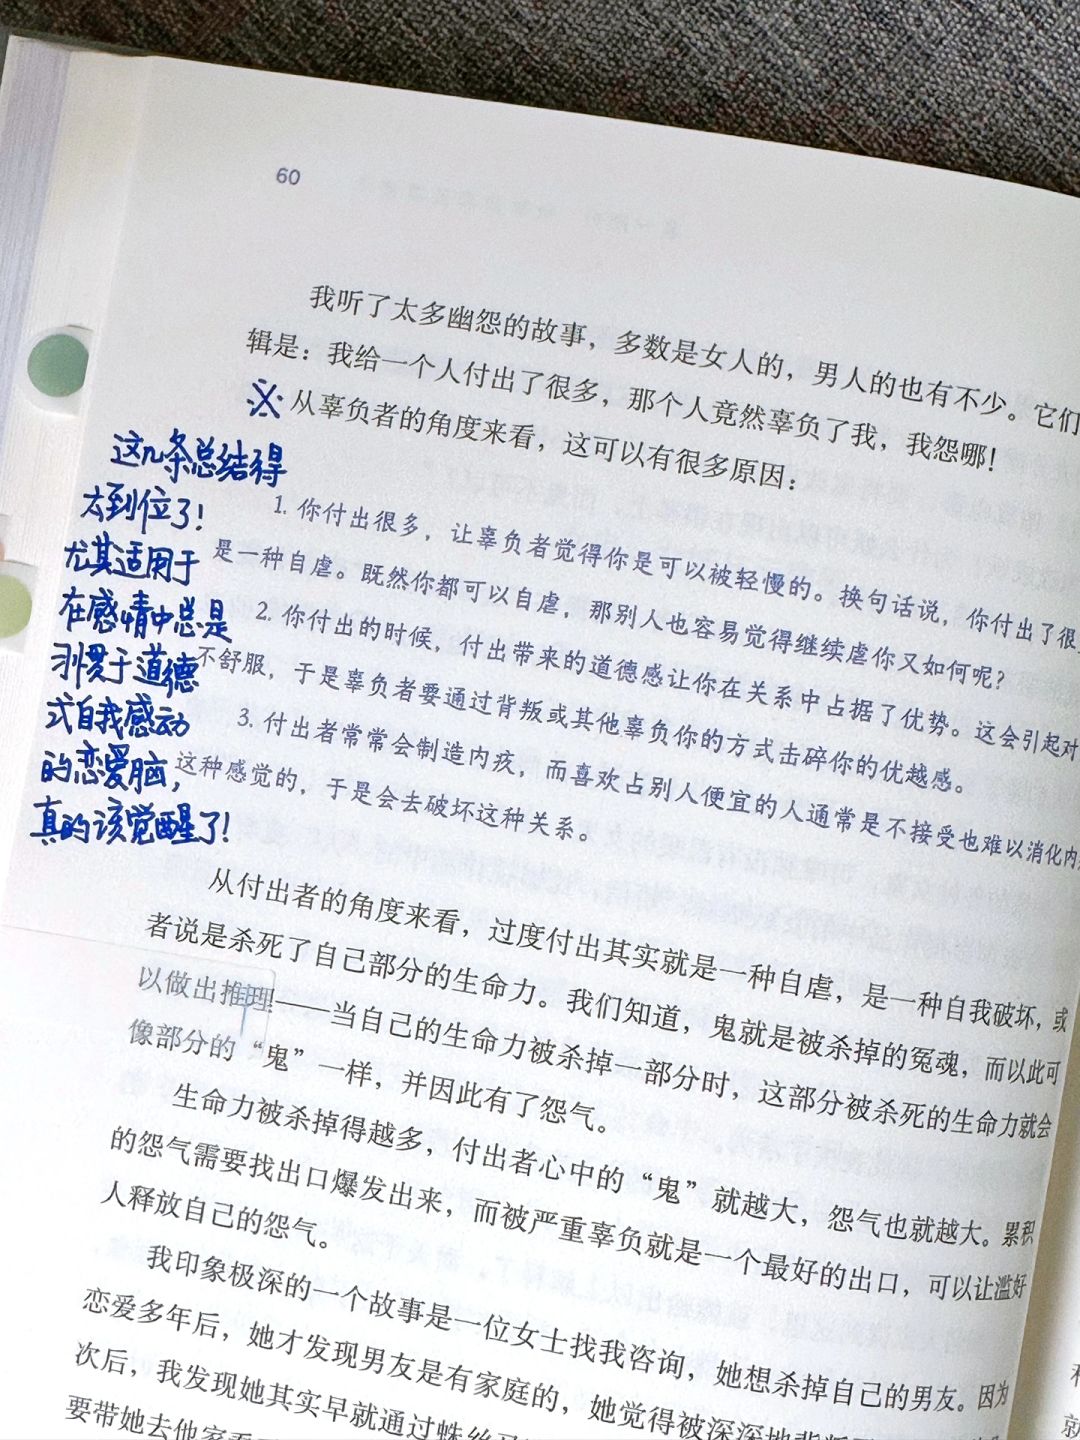 60
我听了太多幽怨的故事，多数是女人的，男人的也有不少。它们
辑是：我给一个人付出了很多，那个人竟然辜负了我，我怨哪！
※从辜负者的角度来看，这可以有很多原因：
1. 你付出很多，让辜负者觉得你是可以被轻慢的。换句话说，你付出了很
是一种自虐。既然你都可以自虐，那别人也容易觉得继续虐你又如何呢？
2. 你付出的时候，付出带来的道德感让你在关系中占据了优势。这会引起对
不舒服，于是辜负者要通过背叛或其他辜负你的方式击碎你的优越感。
3. 付出者常常会制造内疚，而喜欢占别人便宜的人通常是不接受也难以消化内
这种感觉的，于是会去破坏这种关系。
这几条总结得
太到位了！
尤其适用于
在感情中总是
习惯于道德
式自我感动
的恋爱脑，
真的该觉醒了！
从付出者的角度来看，过度付出其实就是一种自虐，是一种自我破坏，或
者说是杀死了自己部分的生命力。我们知道，鬼就是被杀掉的冤魂，而以此可
以做出推理——当自己的生命力被杀掉一部分时，这部分被杀死的生命力就会
像部分的“鬼”一样，并因此有了怨气。
生命力被杀掉得越多，付出者心中的“鬼”就越大，怨气也就越大。累积
的怨气需要找出口爆发出来，而被严重辜负就是一个最好的出口，可以让滥好
人释放自己的怨气。
我印象极深的一个故事是一位女士找我咨询，她想杀掉自己的男友。因为
恋爱多年后，她才发现男友是有家庭的，她觉得被深深地背叛
次后，我发现她其实早就通过蛛丝
要带她去他家